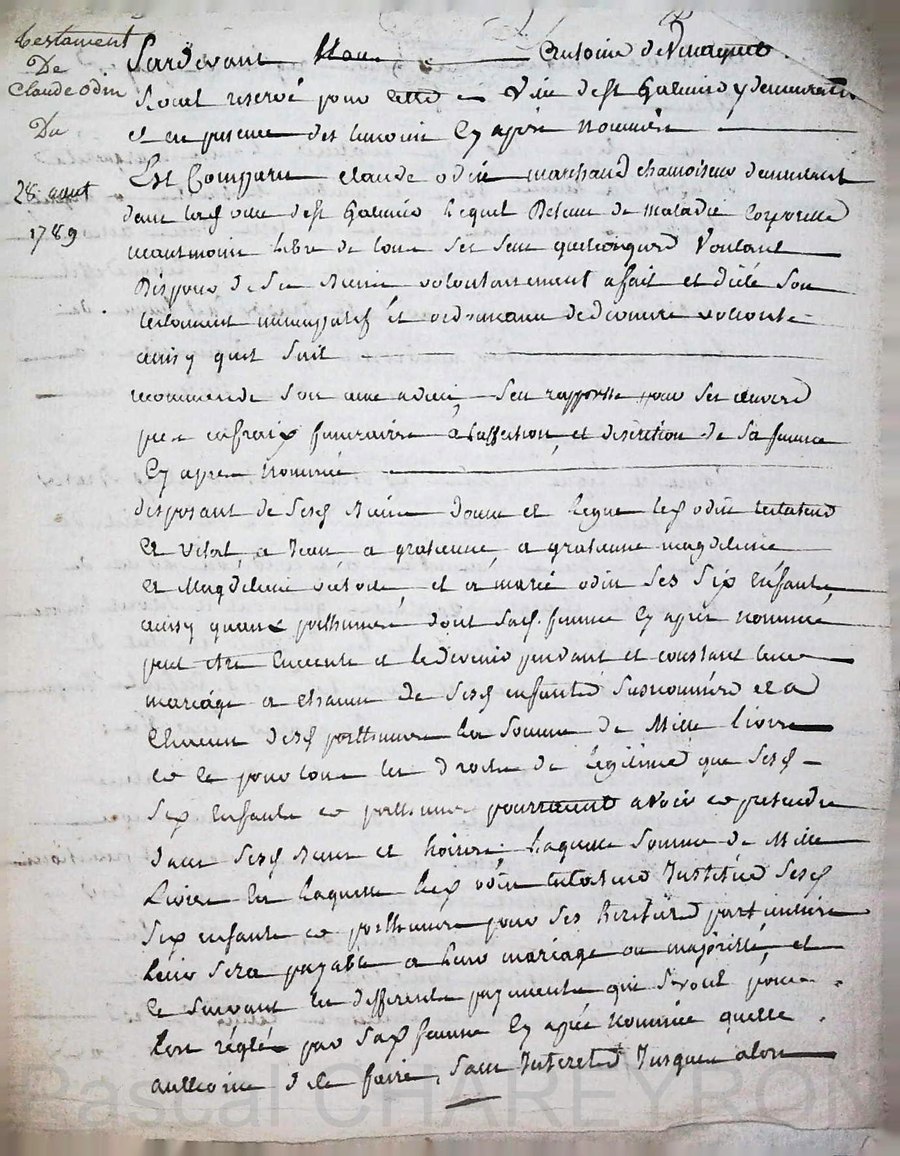 Testament
De
Claude Odin
Du
28 aout
1789
Pardevant Nous Antoine de
Royal reservé pour cette Ville de st Galmier y demeurant
et en presence des temoins cy apres nommés
Est Comparu claude odin marchand chamoiseur demeurant
dans lad ville de st Galmier lequel Detenu de maladie corporelle
neantmoins libre de tous ses sens quelconques Voulant
Disposer de ses Biens volontairement a fait et dicté son
testament nuncupatif et ordonnance de derniere volonté
ainsy quil suit
recommende son ame a dieu, sen rapporte pour ses œuvres
pies et fraix funeraires a laffection et discretion de sa femme
cy apres nommée
disposant de sesd Biens donne et legue led odin testateur
a Vital, a Jean a gratienne, a gratienne magdelaine
a Magdelaine et a marie odin ses six Enfants
ainsy quaux posthumes dont sad. femme cy apres nommée
peut etre Enceinte et le devenir pendant et constant leur
mariage a chacun de sesd enfants susnommés et a
chacun desd posthumes la somme de Mille livres
et ce pour tous les droits de legitime que sesd
six Enfants et posthumes pourroient avoir et pretendre
dans sesd Biens et hoirie. Laquelle somme de Mille
Livres En laquelle led odin testateur Institue sesd
six enfants et posthumes pour ses heritiers particuliers
leur sera payable a leur mariage ou majorité, et
ce suivant les differents payements qui seront pour
lors réglés par sad femme cy après nommée quelle
authorise de le faire, sans Interets Jusqua alors
Pascal CHAREYRON